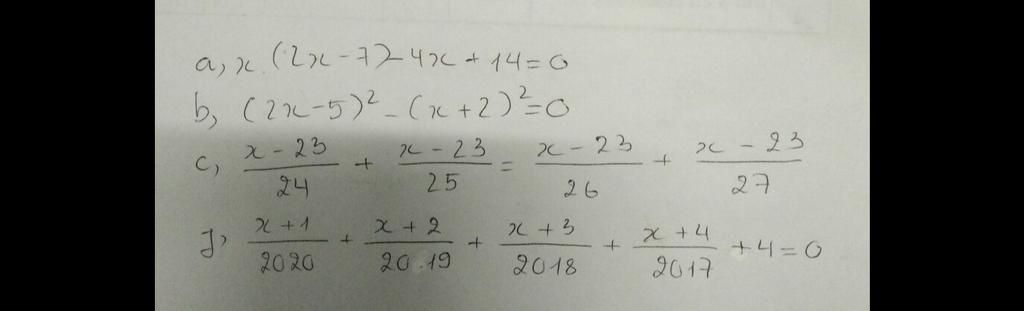 a, x (2x - 7) - 4x + 14 = 0
b, (2x - 5)² - (x + 2)² = 0
c, (x - 23)/24 + (x - 23)/25 = (x - 23)/26 + (x - 23)/27
J, (x + 1)/2020 + (x + 2)/2019 + (x + 3)/2018 + (x + 4)/2017 + 4 = 0